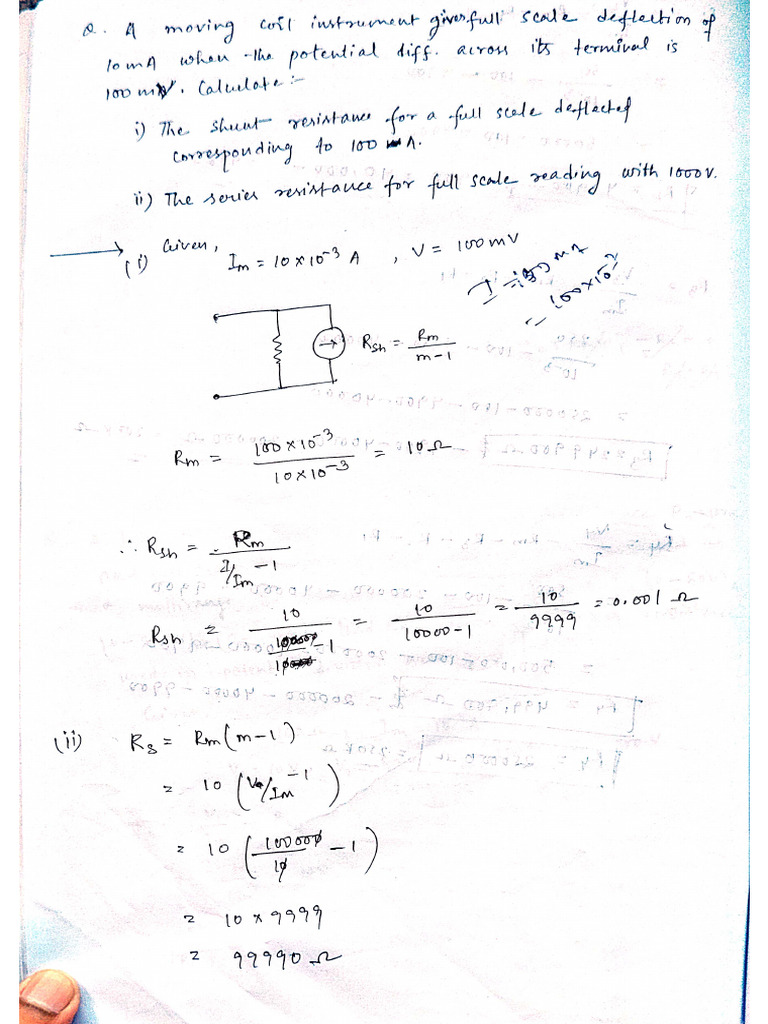 Q. A moving coil instrument gives full scale deflection of
10mA when the potential diff. across its terminal is
100 mV. Calculate :-
i) The shunt resistance for a full scale deflected
corresponding to 100 A.
ii) The series resistance for full scale reading with 1000V.
(i) Given,
Im = 10×10⁻³ A , V = 100mV
= 100×10⁻³
Rsh = Rm / m-1
Rm = 100×10⁻³ / 10×10⁻³ = 10Ω
∴ Rsh = Rm / I/Im -1
Rsh = 10 / -1 = 10 / 10000-1 = 10 / 9999 = 0.001 Ω
(ii) Rs = Rm(m-1)
= 10 (V/Im -1)
= 10 (100000 / 10 - 1)
= 10 × 9999
= 99990 Ω